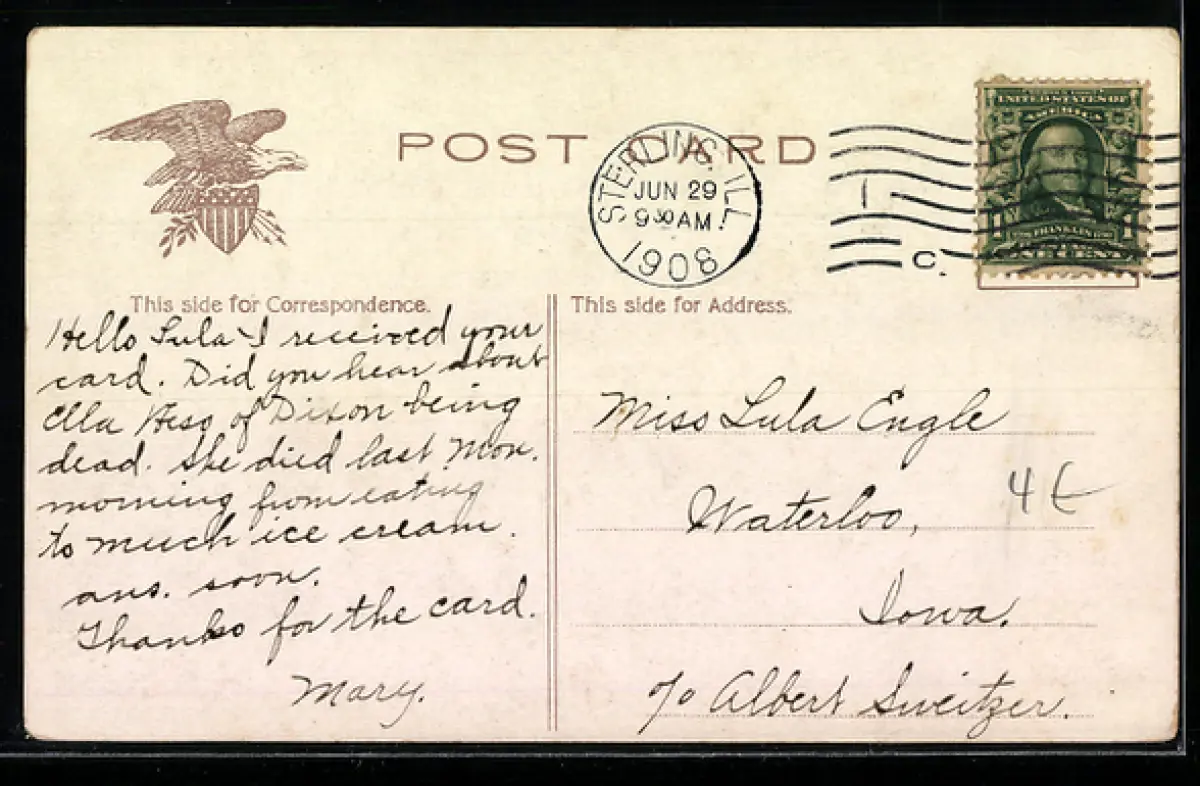 POST CARD
STERLING, ILL.
JUN 29
9 30 AM
1908
1
C.
UNITED STATES OF
AMERICA
1 FRANKLIN 1
ONE CENT
This side for Correspondence.
Hello Lula - I received your
card. Did you hear about
Ella Hess of Dixon being
dead. She died last Mon.
morning from eating
to much ice cream.
ans. soon.
Thanks for the card.
Mary.
This side for Address.
Miss Lula Engle
Waterloo,
Iowa.
c/o Albert Sweitzer.
4